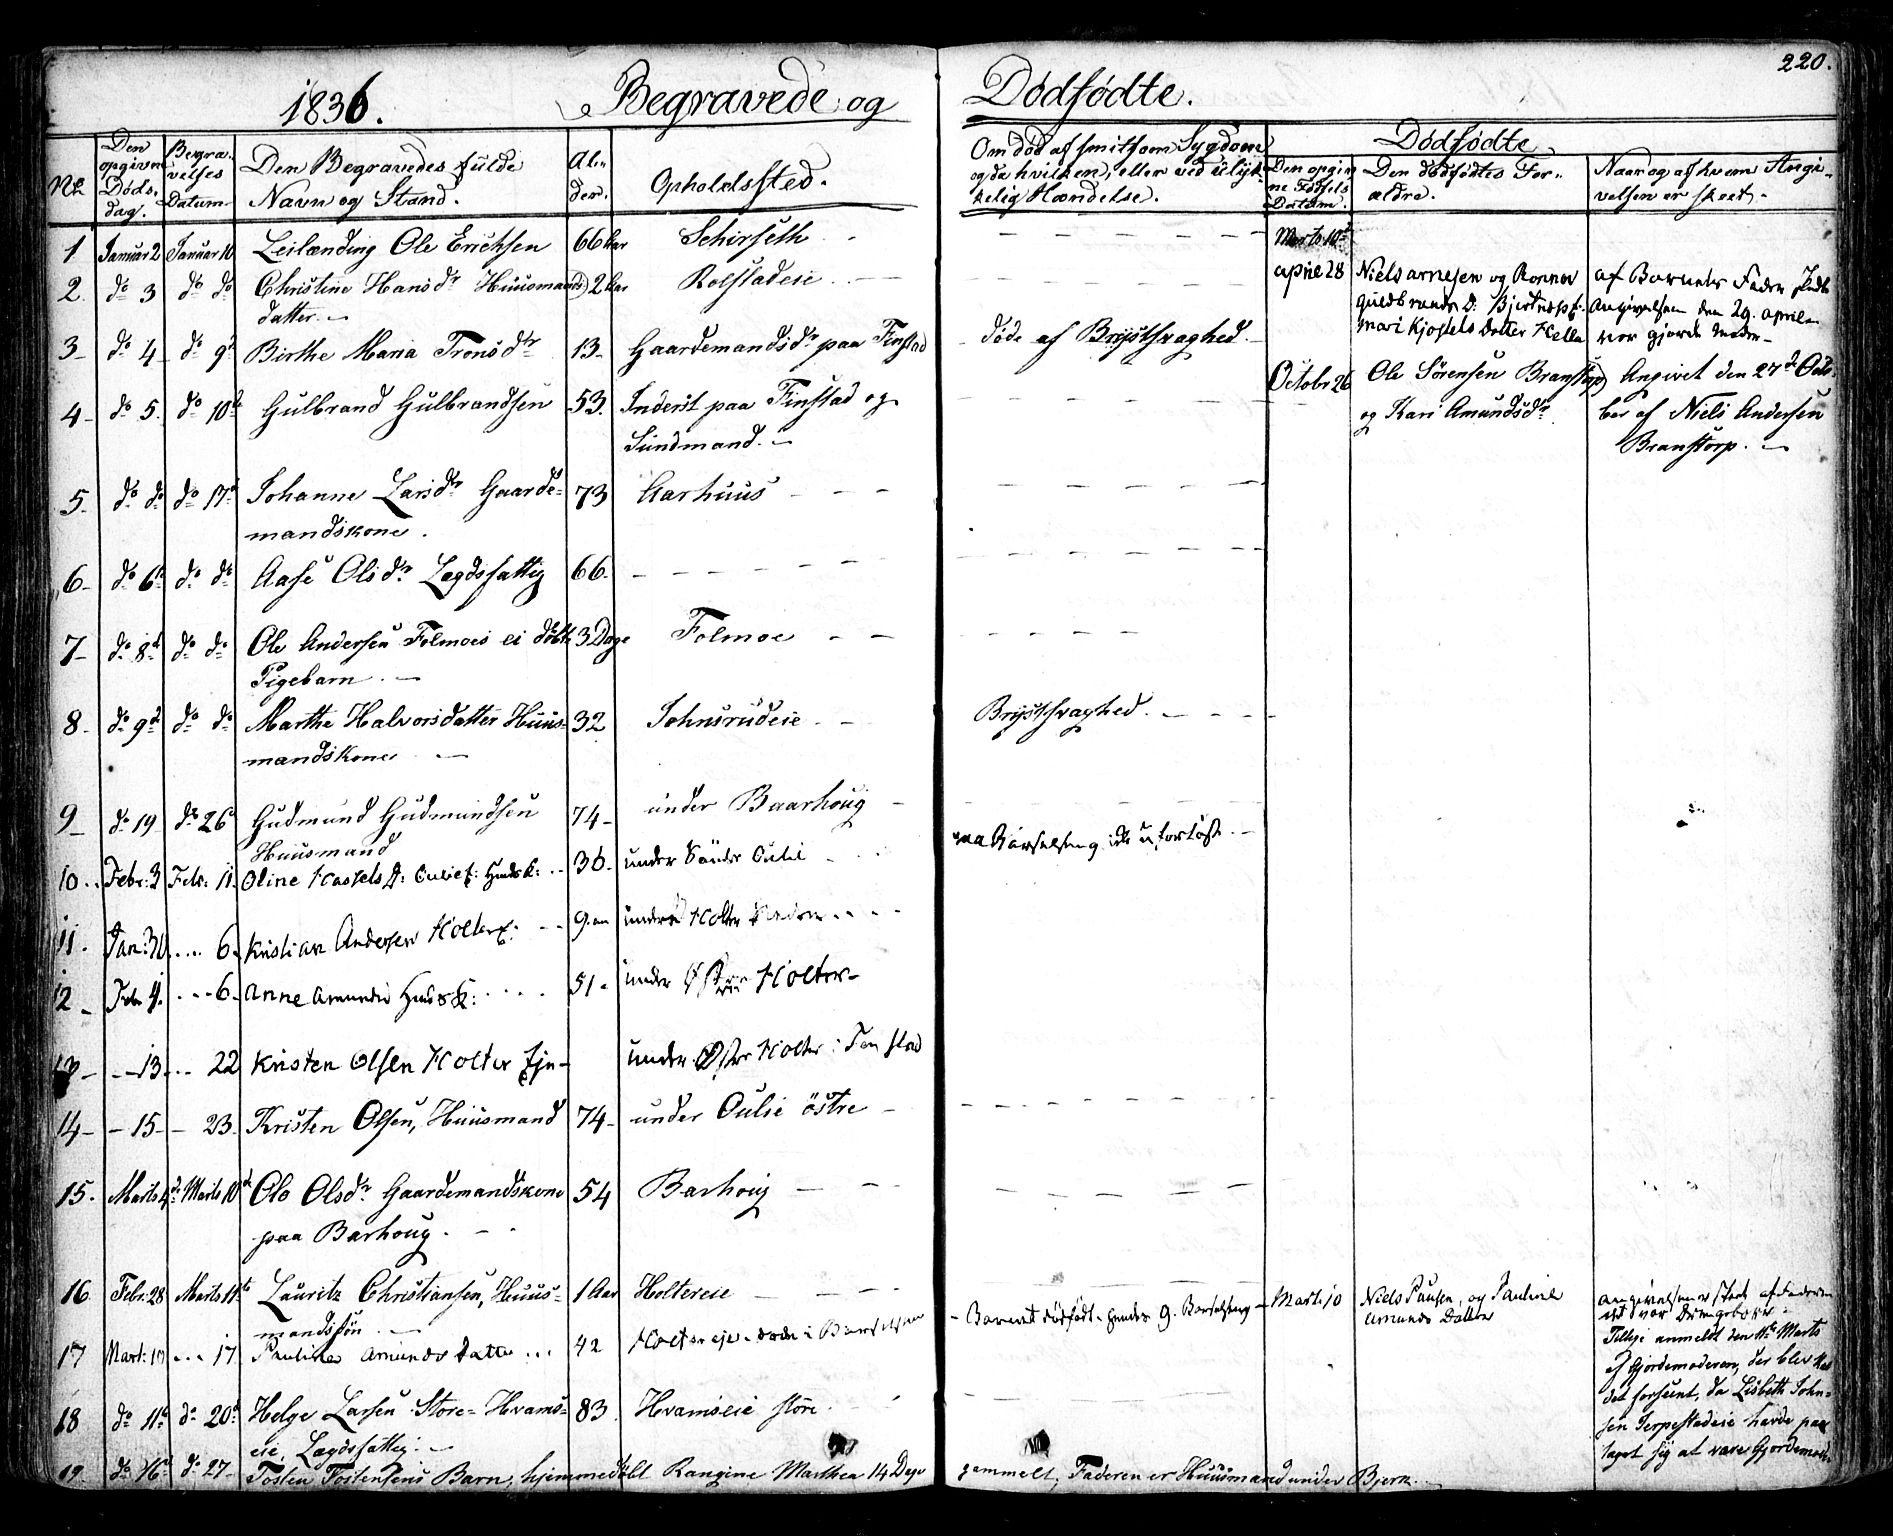 220.
1836. Begravede og Dødfødte.
No
Den opgivne Døds-dag.
Begravelses Datum
Den Begravedes fulde Navn og Stand.
Alder.
Opholdssted.
Om død af smitsom Sygdom og da hvilken, eller ved ulykkelig Hændelse.
Dødfødte
Den opgivne Fødsels Datum.
Den dødfødtes Forældre.
Naar og af hvem Angivelsen er skeet.
1 Januar 2 Januar 10 Leilænding Ole Erichsen 66 Aar Schirseth
2. do 3 do do Christine Hansdr Huusmands 2 Aar Rolstadeie
datter.
3 do 4 do 9 Birthe Maria Tronsdtr 13 Gaardemandsdr paa Finstad døde af Brystsvaghed.
4 do 5. do 10 Gulbrand Gulbrandsen 53. Inderst paa Finstad og
Sundmand.
5. do do do 17 Johanne Larsdtr Gaarde- 73 Aarhuus
mandskone.
6 do 6 do do Aase Olsdr Lægdsfattig 66.
7 do 8 do do Ole Andersen Folmoes ei døbte 3 Dage Folmoe
Pigebarn.
8. do 9 do do Marthe Halvorsdatter Huus- 32 Johnsrudeie Brystsvaghed.
mandskone
9 do 19 do 26 Gudmund Gudmundsen 74 under Baarhoug
Huusmand
10. Febr: 3 Febr: 11. Oline D: Huusk: 36. under Søndre Oulie paa Barselseng
11. Jan: 6. Kristian Andersen Holter 9. under Holter
12 Febr 4. 6. Anne Amunds Huusk: 51. under Østre Holter
13 13 22 Kristen Olsen Holter under Østre Holter i
14 15 23. Kristen Olsen, Huusmand 74 under Oulie östre
15. Marts 4 Marts 10 Ole Olsdr Gaardemandskone 54 Barhoug
paa Barhoug.
16 Febr: 28 Marts 11 Lauritz Christiansen, Huus- 1 Aar Holtereie
mandssøn
17 Mart: 10 17 Pauline Amunds datter 42 Holtereje døde i Barselseng Barnet dødfødt. hendes 9. Barselseng
18 do 11 do 20 Helge Larsen Store-Hvams- 83 Hvamseie store
eie, Lægdsfattig.
19 do 16 do 27 Tosten Tostensens Barn, hjemmedøbt Rangine Marthea 14 Dage gammelt, Faderen er Huusmand under Bjerk.
Marts 10
april 28 Niels Arnesen og Ronnov
Guldbrands D: Bjertnæss
Mari Kjostels Datter
af Barnets Fader skedte
Angivelsen den 29. april
Octobr 26 Ole Sørensen Branstorp
og Kari Amundsdr
Angivet den 27 Octo-
ber af Niels Andersen
Branstorp.
Marts 10 Niels Paulsen, og Pauline
Amunds Datter
Angivelsen er skeet af Faderen
det var Drengebarn
Tillige anmeldt den 11te Marts
af Gjordemoderen, der blev
det forsømt, da Lisbeth John-
sen Serpestadeie havde paa-
taget sig at være Gjordemoder